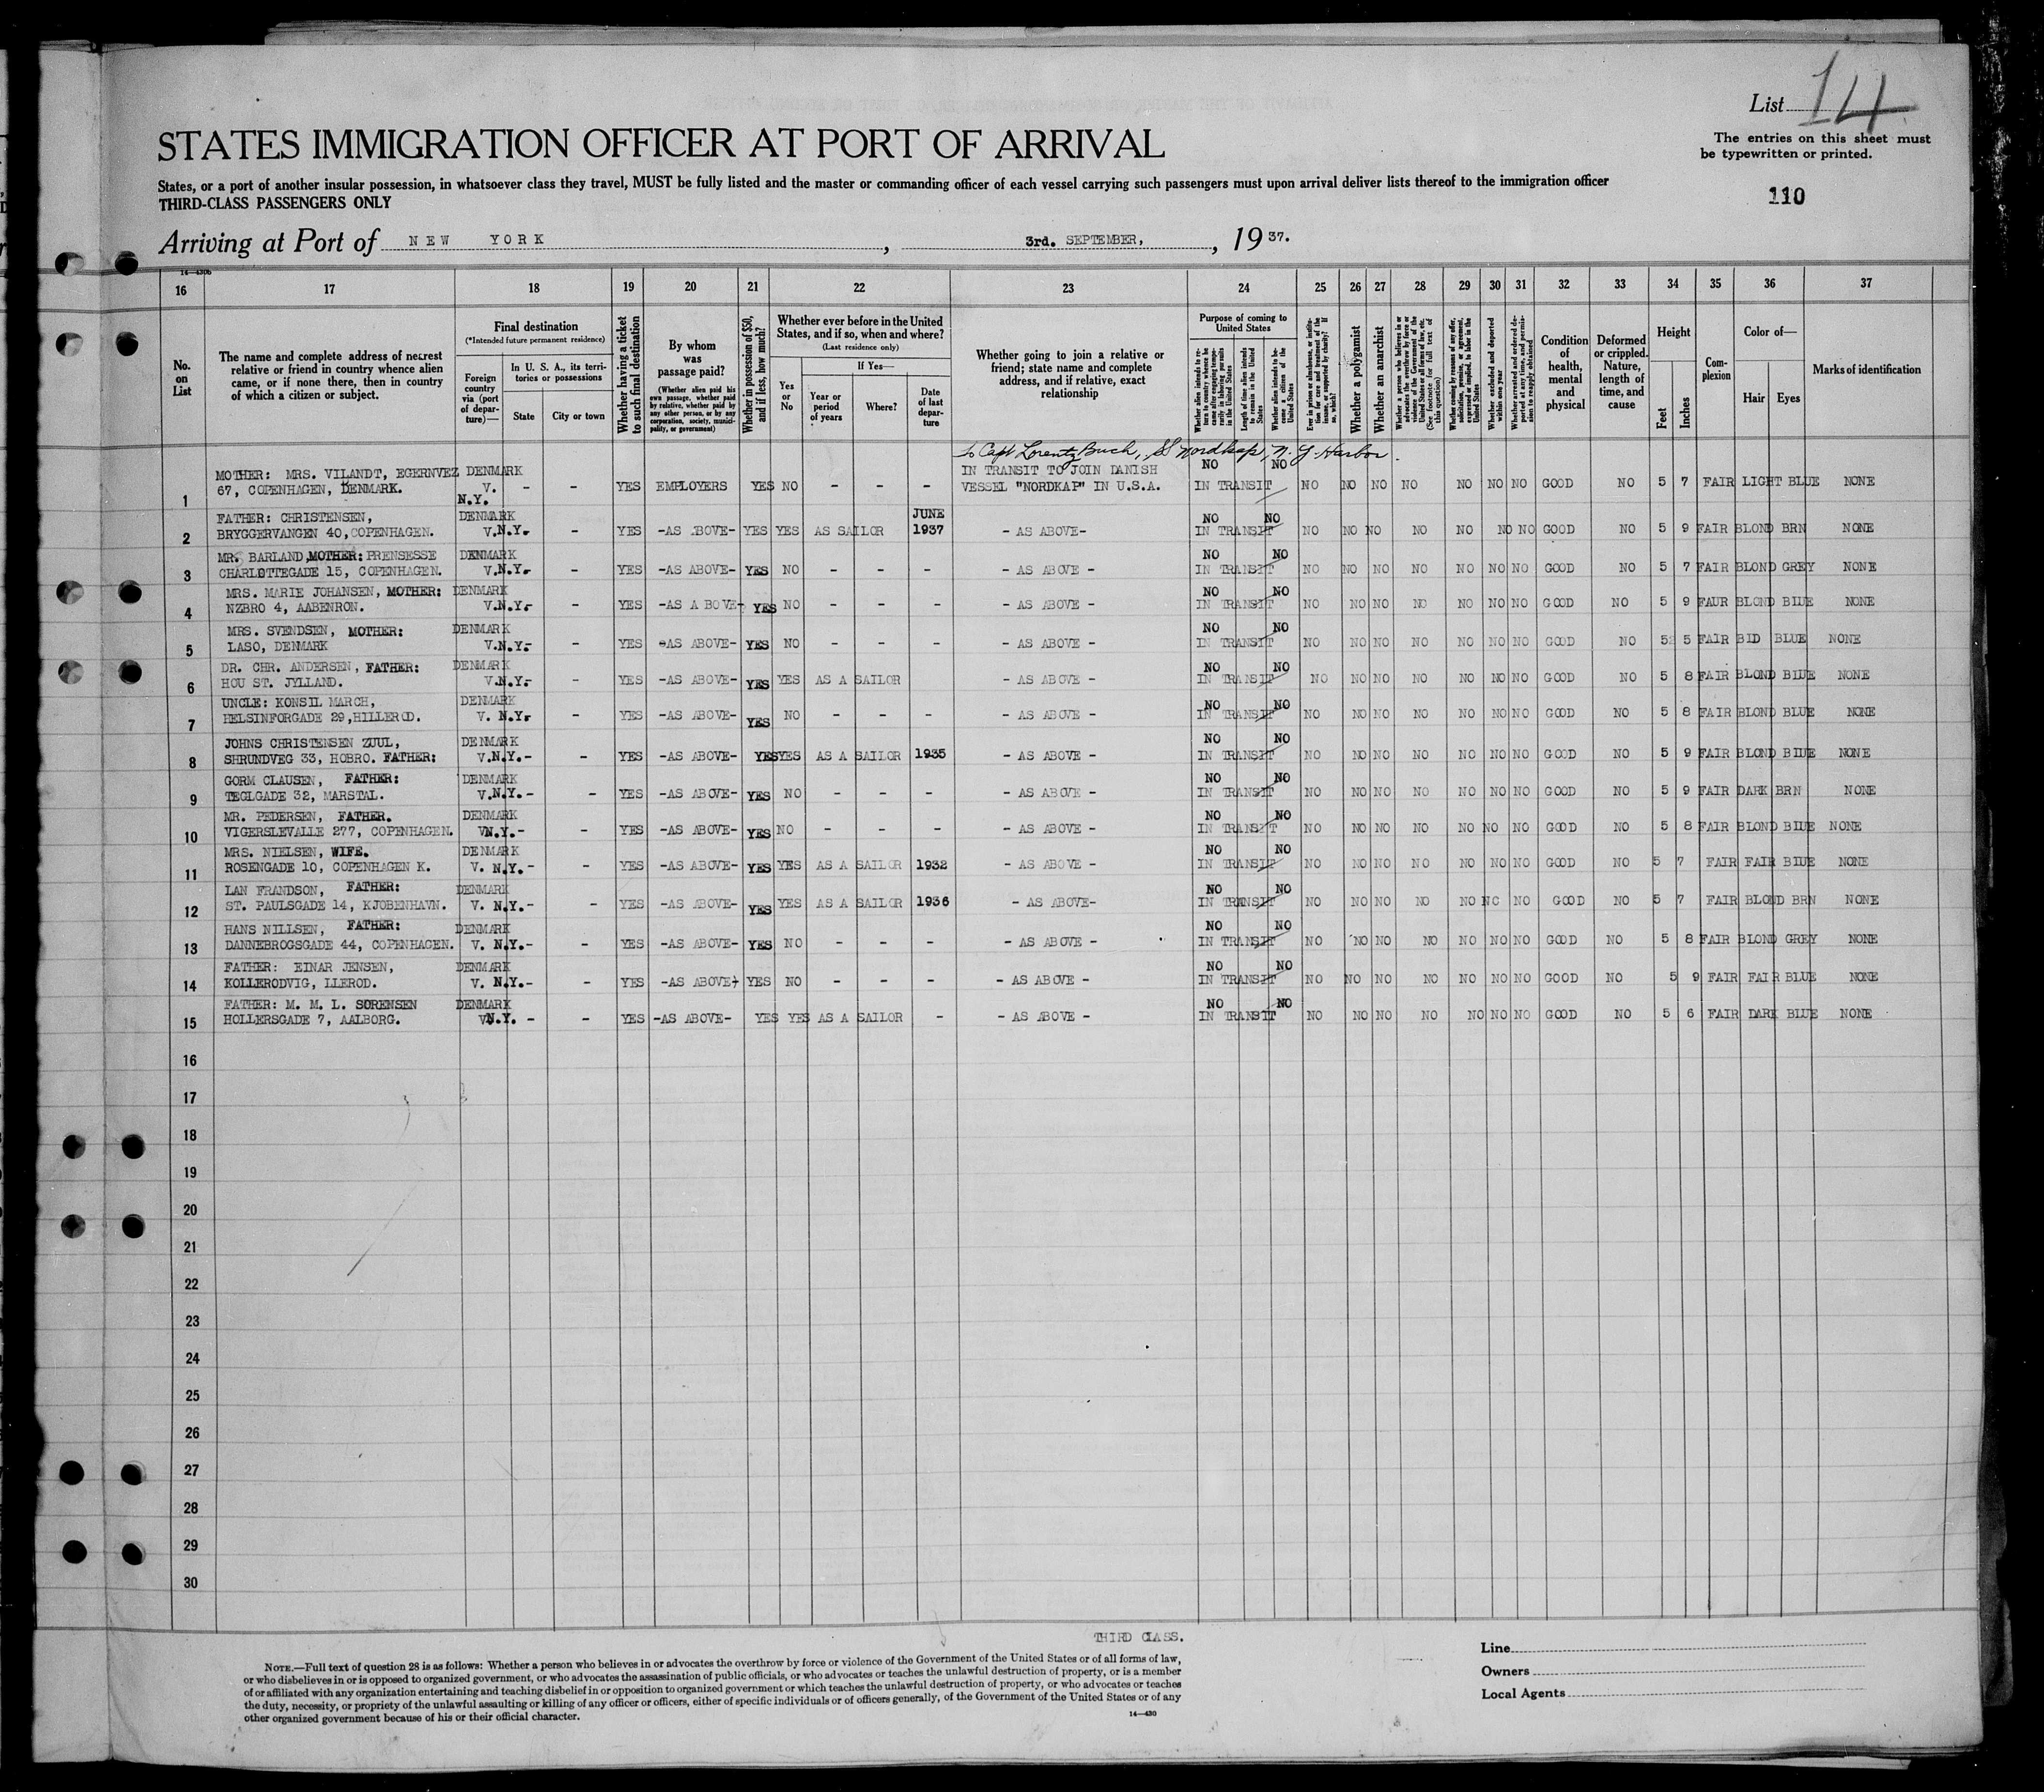 List 14
The entries on this sheet must
be typewritten or printed.
STATES IMMIGRATION OFFICER AT PORT OF ARRIVAL
States, or a port of another insular possession, in whatsoever class they travel, MUST be fully listed and the master or commanding officer of each vessel carrying such passengers must upon arrival deliver lists thereof to the immigration officer
THIRD-CLASS PASSENGERS ONLY
110
Arriving at Port of NEW YORK, 3rd. SEPTEMBER, 1937.
14—430b
16 17 18 19 20 21 22 23 24 25 26 27 28 29 30 31 32 33 34 35 36 37
No. on List
The name and complete address of nearest relative or friend in country whence alien came, or if none there, then in country of which a citizen or subject.
Final destination
(*Intended future permanent residence)
Foreign country via (port of departure)—
In U. S. A., its territories or possessions
State
City or town
Whether having a ticket to such final destination
By whom was passage paid?
(Whether alien paid his own passage, whether paid by relative, whether paid by any other person, or by any corporation, society, municipality, or government)
Whether in possession of $50, and if less, how much?
Whether ever before in the United States, and if so, when and where?
(Last residence only)
Yes or No
If Yes—
Year or period of years
Where?
Date of last departure
Whether going to join a relative or friend; state name and complete address, and if relative, exact relationship
Purpose of coming to United States
Whether alien intends to return to country whence he came after engaging temporarily in laboring pursuits in the United States
Length of time alien intends to remain in the United States
Whether alien intends to become a citizen of the United States
Ever in prison or almshouse, or institution for care and treatment of the insane, or supported by charity? If so, which?
Whether a polygamist
Whether an anarchist
Whether a person who believes in or advocates the overthrow by force or violence of the Government of the United States or all forms of law, etc. (See footnote for full text of this question)
Whether coming by reasons of any offer, solicitation, promise, or agreement, expressed or implied, to labor in the United States
Whether excluded and deported within one year
Whether arrested and ordered deported at any time, and permission to reapply obtained
Condition of health, mental and physical
Deformed or crippled. Nature, length of time, and cause
Height
Feet
Inches
Complexion
Color of—
Hair
Eyes
Marks of identification
to Capt Lorentz Buch, SS Nordkap, N. Y. Harbor.
MOTHER: MRS. VILANDT, EGERNVEZ DENMARK IN TRANSIT TO JOIN DANISH NO NO
1 67, COPENHAGEN, DENMARK. V. N.Y. - - YES EMPLOYERS YES NO - - - VESSEL "NORDKAP" IN U.S.A. IN TRANSIT NO NO NO NO NO NO NO GOOD NO 5 7 FAIR LIGHT BLUE NONE
FATHER: CHRISTENSEN, DENMARK JUNE NO NO
2 BRYGGERVANGEN 40, COPENHAGEN. V.N.Y.- - YES -AS ABOVE- YES YES AS SAILOR 1937 - AS ABOVE- IN TRANSIT NO NO NO NO NO NO NO GOOD NO 5 9 FAIR BLOND BRN NONE
MR. BARLAND, MOTHER: PRENSESSE DENMARK NO NO
3 CHARLOTTEGADE 15, COPENHAGEN. V.N.Y.- - YES -AS ABOVE- YES NO - - - - AS ABOVE - IN TRANSIT NO NO NO NO NO NO NO GOOD NO 5 7 FAIR BLOND GREY NONE
MRS. MARIE JOHANSEN, MOTHER: DENMARK NO NO
4 NZBRO 4, AABENRON. V.N.Y.- - YES -AS A BOVE- YES NO - - - - AS ABOVE - IN TRANSIT NO NO NO NO NO NO NO GOOD NO 5 9 FAUR BLOND BLUE NONE
MRS. SVENDSEN, MOTHER: DENMARK NO NO
5 LASO, DENMARK V.N.Y.- - YES -AS ABOVE- YES NO - - - - AS ABOVE - IN TRANSIT NO NO NO NO NO NO NO GOOD NO 5 5 FAIR BLD BLUE NONE
DR. CHR. ANDERSEN, FATHER: DENMARK NO NO
6 HOU ST. JYLLAND. V.N.Y.- - YES -AS ABOVE- YES YES AS A SAILOR - AS ABOVE - IN TRANSIT NO NO NO NO NO NO NO GOOD NO 5 8 FAIR BLOND BLUE NONE
UNCLE: KONSIL MARCH, DENMARK NO NO
7 HELSINFORGADE 29, HILLEROD. V. N.Y.- - YES -AS ABOVE- YES NO - - - - AS ABOVE - IN TRANSIT NO NO NO NO NO NO NO GOOD NO 5 8 FAIR BLOND BLUE NONE
JOHNS CHRISTENSEN ZUUL, DENMARK NO NO
8 SHRUNDVEG 33, HOBRO. FATHER: V.N.Y.- - YES -AS ABOVE- YES YES AS A SAILOR 1935 - AS ABOVE - IN TRANSIT NO NO NO NO NO NO NO GOOD NO 5 9 FAIR BLOND BLUE NONE
GORM CLAUSEN, FATHER: DENMARK NO NO
9 TEGLGADE 32, MARSTAL. V.N.Y.- - YES -AS ABOVE- YES NO - - - - AS ABOVE - IN TRANSIT NO NO NO NO NO NO NO GOOD NO 5 9 FAIR DARK BRN NONE
MR. PEDERSEN, FATHER. DENMARK NO NO
10 VIGERSLEVALLE 277, COPENHAGEN. VN.Y.- - YES -AS ABOVE- YES NO - - - - AS ABOVE - IN TRANSIT NO NO NO NO NO NO NO GOOD NO 5 8 FAIR BLOND BLUE NONE
MRS. NIELSEN, WIFE. DENMARK NO NO
11 ROSENGADE 10, COPENHAGEN K. V. N.Y.- - YES -AS ABOVE- YES YES AS A SAILOR 1932 - AS ABOVE - IN TRANSIT NO NO NO NO NO NO NO GOOD NO 5 7 FAIR FAIR BLUE NONE
LAN FRANDSON, FATHER: DENMARK NO NO
12 ST. PAULSGADE 14, KJOBENHAVN. V. N.Y.- - YES -AS ABOVE- YES YES AS A SAILOR 1936 - AS ABOVE- IN TRANSIT NO NO NO NO NO NO NO GOOD NO 5 7 FAIR BLOND BRN NONE
HANS NILLSEN, FATHER: DENMARK NO NO
13 DANNEBROGSGADE 44, COPENHAGEN. V. N.Y.- - YES -AS ABOVE- YES NO - - - - AS ABOVE - IN TRANSIT NO NO NO NO NO NO NO GOOD NO 5 8 FAIR BLOND GREY NONE
FATHER: EINAR JENSEN, DENMARK NO NO
14 KOLLERODVIG, LLEROD. V. N.Y.- - YES -AS ABOVE- YES NO - - - - AS ABOVE - IN TRANSIT NO NO NO NO NO NO NO GOOD NO 5 9 FAIR FAIR BLUE NONE
FATHER: M. M. L. SORENSEN DENMARK NO NO
15 HOLLERSGADE 7, AALBORG. VN.Y. - - YES -AS ABOVE- YES YES AS A SAILOR - - AS ABOVE - IN TRANSIT NO NO NO NO NO NO NO GOOD NO 5 6 FAIR DARK BLUE NONE
16
17
18
19
20
21
22
23
24
25
26
27
28
29
30
THIRD CLASS.
NOTE.—Full text of question 28 is as follows: Whether a person who believes in or advocates the overthrow by force or violence of the Government of the United States or of all forms of law,
or who disbelieves in or is opposed to organized government, or who advocates the assassination of public officials, or who advocates or teaches the unlawful destruction of property, or is a member
of or affiliated with any organization entertaining and teaching disbelief in or opposition to organized government or which teaches the unlawful destruction of property, or who advocates or teaches
the duty, necessity, or propriety of the unlawful assaulting or killing of any officer or officers, either of specific individuals or of officers generally, of the Government of the United States or of any
other organized government because of his or their official character.
14—430
Line
Owners
Local Agents